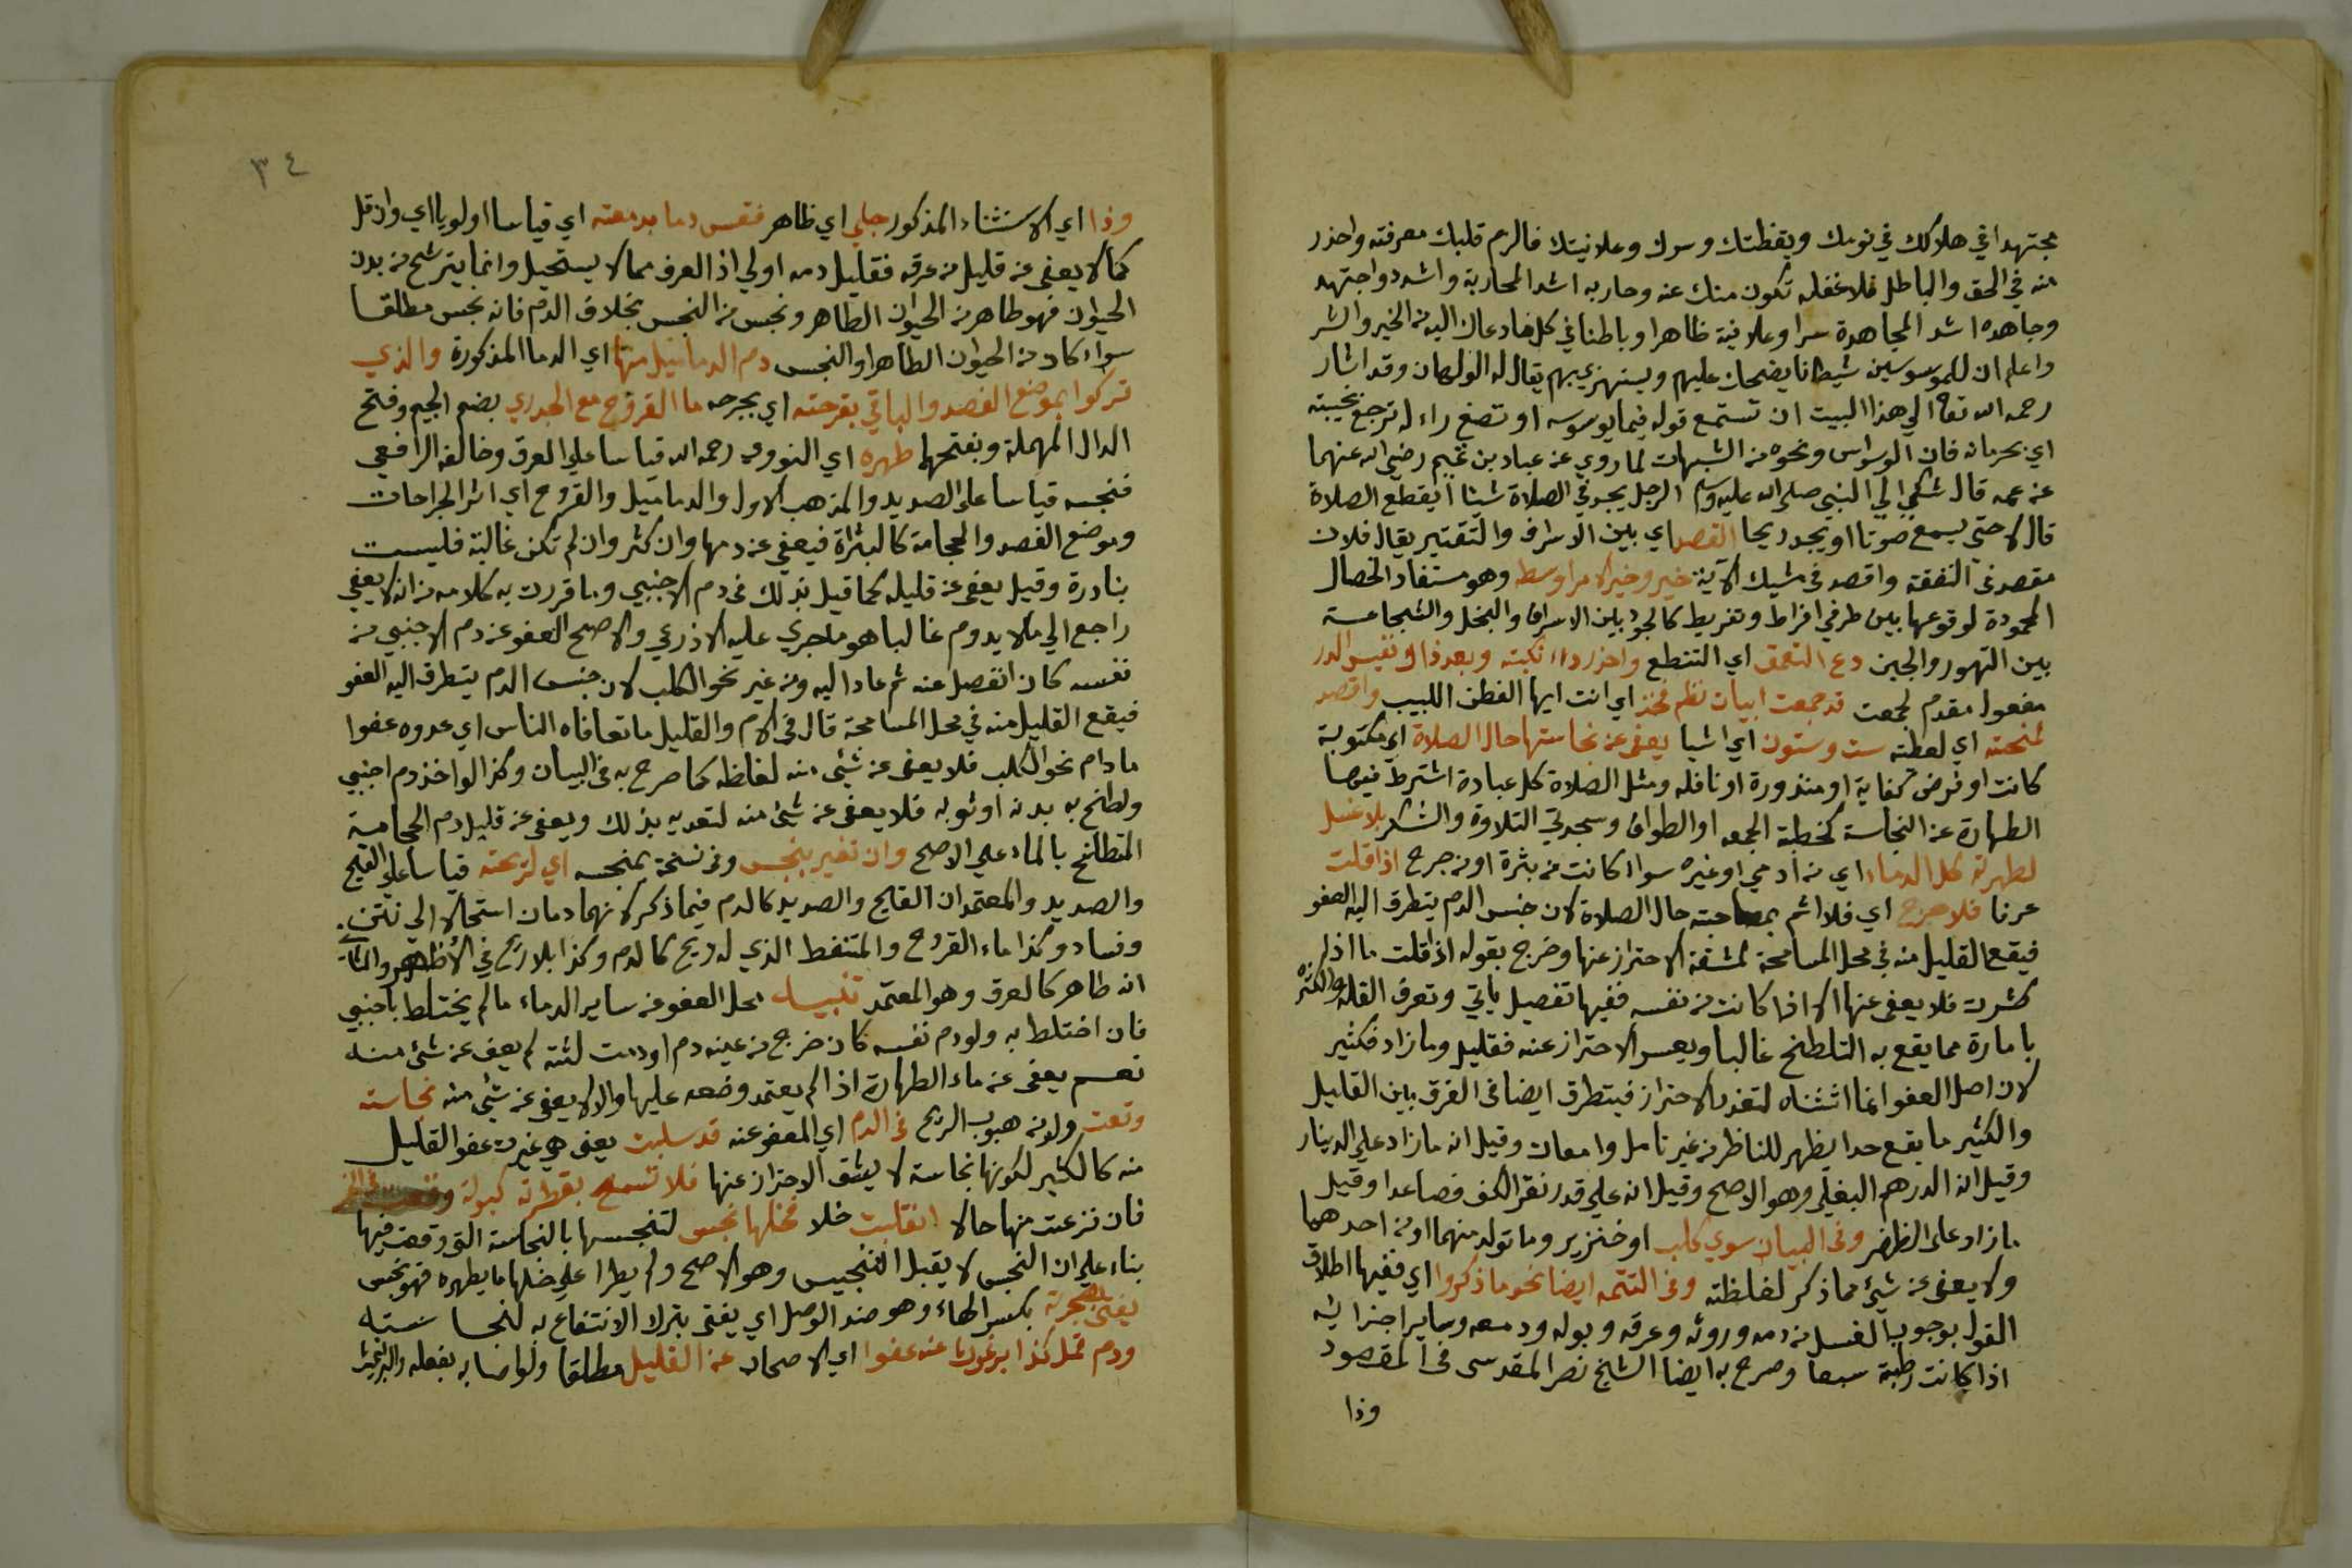 مجتهدا في هلاكك في نومك ويقظتك وسرك وعلانيتك فالزم قلبك معرفته واحذر
منه في الحق والباطل فلا غفله تكون منك عنه وحاربه اشد المحاربة واشدد واجتهد
وجاهده اشد المجاهدة سرا وعلانية ظاهرا وباطنا في كل ما دعاك اليه من الخير والشر
واعلم ان للموسوسين شيطانا يضحك عليهم ويستهزي بهم يقال له الولهان وقد اشار
رحمه الله تعا الي هذا البيت ان تستمع قوله فيما يوسوسه او تصغ راء له ترجع بخيبته
اي بحرمانه فان الوسواس ونحوه من الشبهات لما روي عن عباد بن تميم رضي الله عنهما
عن عمه قال شكي الي النبي صلى الله عليه وسلم الرجل يجد في الصلاة شيئا أيقطع الصلاة
قال لا حتى يسمع صوتا او يجد ريحا القصد اي بين الاسراف والتقتير يقال فلان
مقصد في النفقة واقصد في مشيك الآية خير وخير الامر اوسطه وهو مستفاد الخصال
المحمودة لوقوعها بين طرفي افراط وتفريط كالجود بين الاسراف والبخل والشجاعة
بين التهور والجبن دع التعمق اي التنطع واحذر داء نكبته وبعد ذا وتفيس الدر
مفعول مقدم لجمعت قد جمعت ابيات نظم فخذ اي انت ايها الفطن اللبيب واقصد
لمنحته اي لعطته ست وستون اي اشيا يعفى عن نجاستها حال الصلاة اي مكتوبة
كانت او فرض كفاية او منذورة او نافله ومثل الصلاة كل عبادة اشترط فيها
الطهارة عن النجاسة كخطبة الجمعه او الطواف وسجدتي التلاوة والشكر بلا غسل
لطهرته كل الدماء اي من ادمي او غيره سواء كانت من بثرة او من جرح اذا قلت
عرفا فلا حرج اي فلا اثم بمصاحبته حال الصلاة لان جنس الدم يتطرق اليه العفو
فيقع القليل منه في محل المسامحة لمشقة الاحتراز عنها وخرج بقوله اذا قلت ما اذا
كثرت فلا يعفى عنها الا اذا كانت من نفسه ففيها تفصيل ياتي وتعرف القلة والكثره
بامارة مما يقع به التلطخ غالبا ويعسر الاحتراز عنه فقليل وما زاد فكثير
لان اصل العفو انما اثبتناه لتعذر الاحتراز فيتطرق ايضا في الفرق بين القليل
والكثير ما بقع حدا يظهر للناظر من غير تامل وامعان وقيل انه ما زاد على الدينار
وقيل انه الدرهم البغلي وهو الاصح وقيل انه على قدر نقر الكف فصاعدا وقيل
ما زاد على الظفر وفي البيان سوي كلب او خنزير وما تولد منهما او من احدهما
ولا يعفى عن شيء مما ذكر لغلظته وفي التتمه ايضا نحو ما ذكروا اي ففيها اطلاق
القول بوجوب الغسل من دمه وروثه وعرقه وبوله ودمعه وساير اجزائه
اذا كانت رطبة سبعا وصرح به ايضا الشيخ نصر المقدسي في المقصود
وذا
٣٤
وذا اي الاستثناء المذكور جلي اي ظاهر فقس دما بدمعته اي قياسا اولويا اي وان قل
كما لا يعفى عن قليل من عرقه فقليل دمه اولي اذ العرق مما لا يستحيل وانما يترشح من بدن
الحيوان فهو طاهر من الحيوان الطاهر ونجس من النجس بخلاف الدم فانه نجس مطلقا
سواء كان من الحيوان الطاهر او النجس دم الدماميل منها اي الدما المذكورة والذي
تركوا بموضع الفصد والباقي بقرحته اي بجرحه ما القروح مع الجدري بضم الجيم وفتح
الدال المهملة وبفتحهما طهره اي النووي رحمه الله قياسا على العرق وخالفه الرافعي
فنجسه قياسا على الصديد والمذهب الاول والدماميل والقروح اي اثر الجراحات
وموضع الفصد والحجامة كالبثرة فيعفى عن دمها وان كثر وان لم تكن غالبة فليست
بنادرة وقيل يعفى عن قليله كما قيل بذلك في دم الاجنبي وما قررت به كلامه من انه لا يعفي
راجع الي ما لا يدوم غالبا هو ما جري عليه الاذرعي والاصح العفو عن دم الاجنبي من
نفسه كان انفصل عنه ثم عاد اليه ومن غير نحو الكلب لان جنس الدم يتطرق اليه العفو
فيقع القليل منه في محل المسامحة قال في الام والقليل ما تعافاه الناس اي عدوه عفوا
ما دام نحو الكلب فلا يعفى عن شئ منه لغلظه كما صرح به في البيان وكذا لو اخذ دم اجنبي
ولطخ به بدنه او ثوبه فلا يعفى عن شئ منه لتعديه بذلك ويعفى عن قليل دم الحجامة
المتطلخ بالماء علي الاصح وان تغير بنجس وفي نسخة بمنجسه اي لزيحته قياسا على القيح
والصديد والمعتمد ان القيح والصديد كالدم فيما ذكر لانهما دمان استحالا الي نتن
وفساد وكذا ماء القروح والمتنفط الذي له ريح كالدم وكذا بلا ريح في الاظهر والثاني
انه طاهر كالعرق وهو المعتمد تنبيه محل العفو من ساير الدماء ما لم يختلط باجنبي
فان اختلط به ولو دم نفسه كان خرج من عينه دم او دميت لثته لم يعف عن شئ منه
نعم يعفى عن ماء الطهارة اذا لم يعتمد وضعه عليها والا لا يعفى عن شئ منه نجاسته
وقعت ولو من هبوب الريح في الدم اي المعفو عنه قد سلبت يعني هي غيرت عفو القليل
منه كالكثير لكونها نجاسة لا يشق الاحتراز عنها فلا تسمح بقطرته كبوله
فان نزعت منها حالا انقلبت خلا فخلها نجس لتنجسها بالنجاسة التي وقعت فيها
بناء علي ان النجس لا يقبل التنجيس وهو الاصح ولم يطرا على خلها ما يطهره فهو نجس
يفتى بهجرته بكسر الهاء وهو ضد الوصل اي يفتى بترك الانتفاع به لنجاسته
ودم قمل كذا برغوث عنه عفوا اي الاصحاب عن القليل مطلقا ولو اصابه بفعله والبراغيث